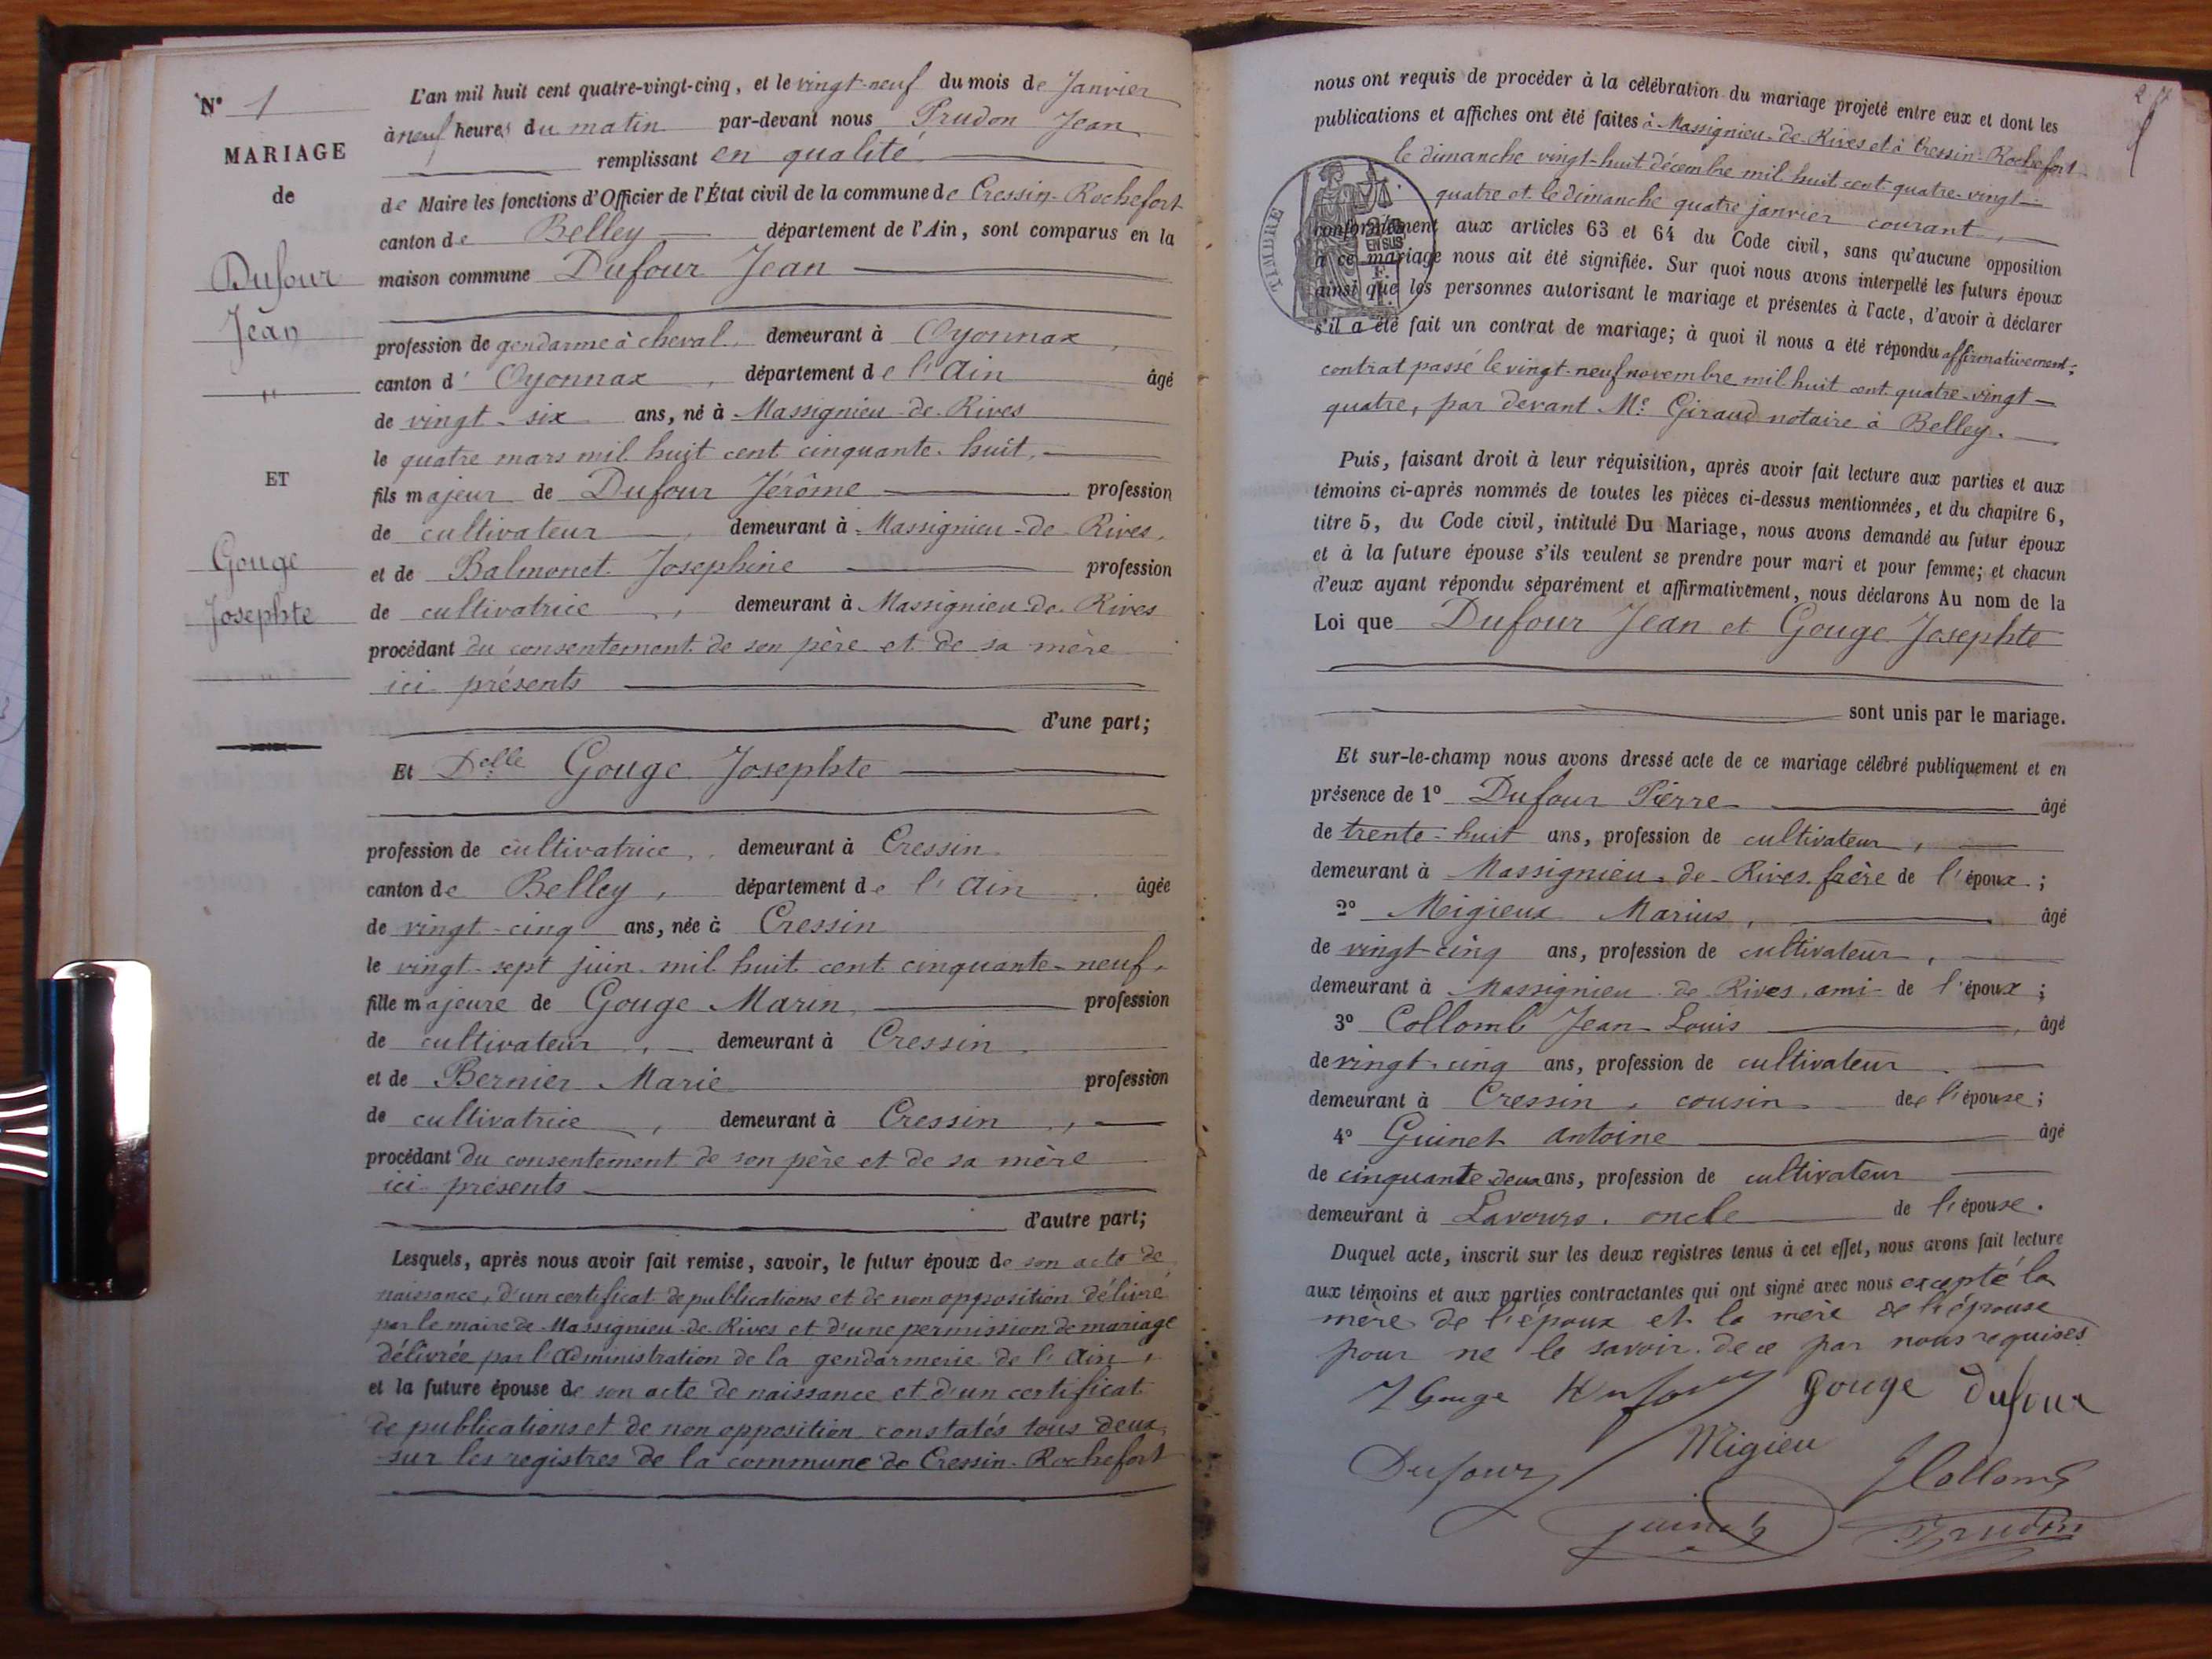 N° 1
MARIAGE
de
Dufour
Jean
"
ET
Gouge
Josephte
L'an mil huit cent quatre-vingt-cinq, et le vingt-neuf du mois de Janvier
à neuf heures du matin par-devant nous Prudon Jean
remplissant en qualité
de Maire les fonctions d'Officier de l'État civil de la commune de Cressin-Rochefort
canton de Belley département de l'Ain, sont comparus en la
maison commune Dufour Jean
profession de gendarme à cheval, demeurant à Oyonnax,
canton d' Oyonnax, département de l'Ain âgé
de vingt-six ans, né à Massignieu-de-Rives
le quatre mars mil huit cent cinquante-huit,
fils majeur de Dufour Jérôme profession
de cultivateur, demeurant à Massignieu-de-Rives,
et de Balmonet Josephine profession
de cultivatrice, demeurant à Massignieu-de-Rives
procédant du consentement de son père et de sa mère
ici présents
d'une part;
Et Delle Gouge Josephte
profession de cultivatrice, demeurant à Cressin
canton de Belley, département de l'Ain âgée
de vingt-cinq ans, née à Cressin
le vingt-sept juin mil huit cent cinquante-neuf,
fille majeure de Gouge Marin, profession
de cultivateur, demeurant à Cressin
et de Bernier Marie profession
de cultivatrice, demeurant à Cressin,
procédant du consentement de son père et de sa mère
ici présents
d'autre part;
Lesquels, après nous avoir fait remise, savoir, le futur époux de son acte de
naissance, d'un certificat de publications et de non opposition délivré
par le maire de Massignieu-de-Rives et d'une permission de mariage
délivrée par l'administration de la gendarmerie de l'Ain,
et la future épouse de son acte de naissance et d'un certificat
de publications et de non opposition constatés tous deux
sur les registres de la commune de Cressin-Rochefort
nous ont requis de procéder à la célébration du mariage projeté entre eux et dont les
publications et affiches ont été faites à Massignieu-de-Rives et à Cressin-Rochefort
le dimanche vingt-huit décembre mil huit cent quatre-vingt-
quatre et le dimanche quatre janvier courant,
TIMBRE
EN SUS
conformément aux articles 63 et 64 du Code civil, sans qu'aucune opposition
à ce mariage nous ait été signifiée. Sur quoi nous avons interpellé les futurs époux
ainsi que les personnes autorisant le mariage et présentes à l'acte, d'avoir à déclarer
s'il a été fait un contrat de mariage; à quoi il nous a été répondu affirmativement;
contrat passé le vingt-neuf novembre mil huit cent quatre-vingt-
quatre, par devant Me Giraud notaire à Belley.
Puis, faisant droit à leur réquisition, après avoir fait lecture aux parties et aux
témoins ci-après nommés de toutes les pièces ci-dessus mentionnées, et du chapitre 6,
titre 5, du Code civil, intitulé Du Mariage, nous avons demandé au futur époux
et à la future épouse s'ils veulent se prendre pour mari et pour femme; et chacun
d'eux ayant répondu séparément et affirmativement, nous déclarons Au nom de la
Loi que Dufour Jean et Gouge Josephte
sont unis par le mariage.
Et sur-le-champ nous avons dressé acte de ce mariage célébré publiquement et en
présence de 1° Dufour Pierre âgé
de trente-huit ans, profession de cultivateur,
demeurant à Massignieu-de-Rives frère de l'époux;
2° Migieux Marius, âgé
de vingt-cinq ans, profession de cultivateur,
demeurant à Massignieu de Rives, ami de l'époux;
3° Collomb Jean-Louis, âgé
de vingt-cinq ans, profession de cultivateur
demeurant à Cressin, cousin de l'épouse;
4° Guinet Antoine âgé
de cinquante deux ans, profession de cultivateur
demeurant à Lavours, oncle de l'épouse.
Duquel acte, inscrit sur les deux registres tenus à cet effet, nous avons fait lecture
aux témoins et aux parties contractantes qui ont signé avec nous excepté la
mère de l'époux et la mère de l'épouse
pour ne le savoir de ce par nous requises.
J Gouge Dufour Gouge Dufour
Dufour Migieu J Collomb
Guinet Prudon